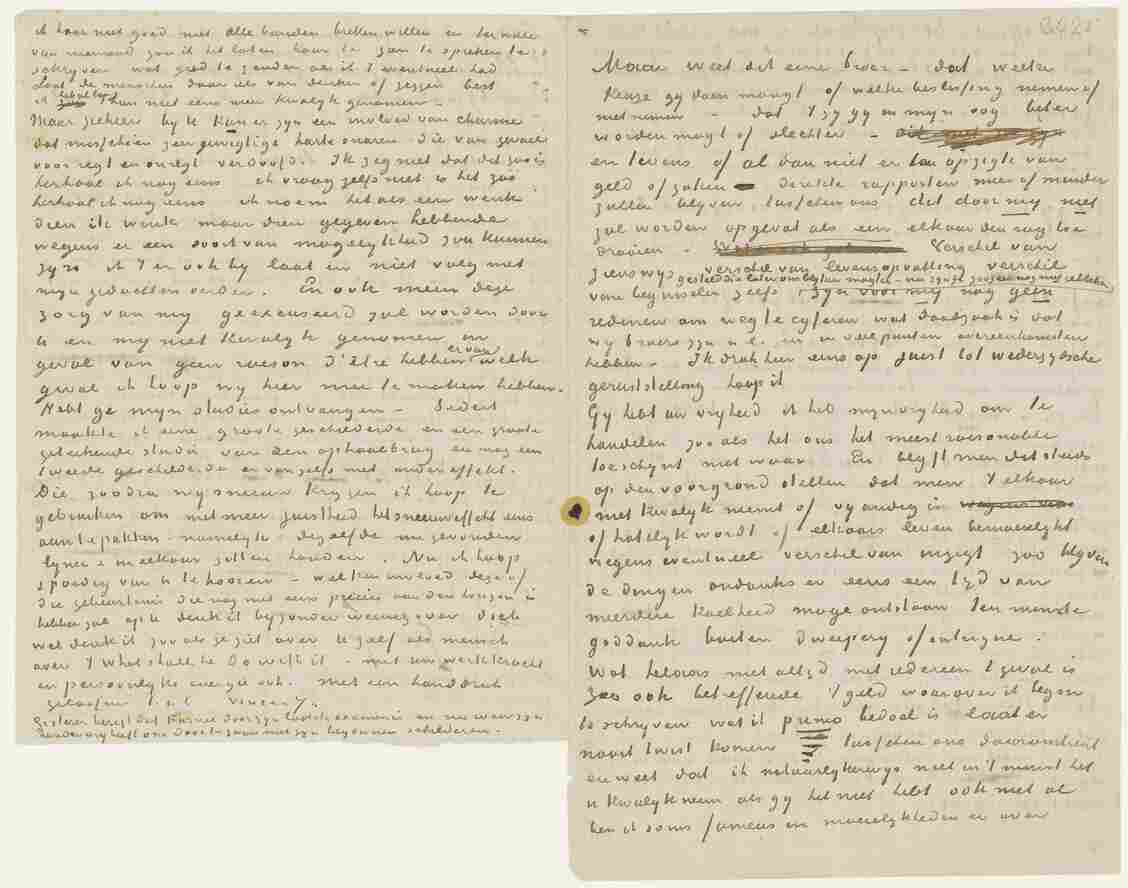 ik haar niet goed met alle banden breken willen en ter wille
van niemand zou ik het laten haar te zien te spreken te
schryven wat geld te zenden als ik 't eventueel had
Laat de menschen daar iets van denken of zeggen best
ik zal 't hun niet eens meer kwalyk genomen –
Maar zeker by U kan er zyn een invloed van charme
dat misschien zeer gewigtige harte snaren die van zwart
voor regt en onregt verdoofd. Ik zeg niet dat dit zoo is
herhaal ik nog eens ik vraag zelfs niet is het zoo
herhaal ik nog eens ik noem het als een wenk
dien ik wenk maar dien gegeven hebbende
wegens er een soort van mogelykheid zou kunnen
zyn ik 't er ook by laat en niet volg met
myn gedachten verder. En ook meen deze
zorg van my geexcuseerd zal worden door
U en my niet kwalyk genomen in
geval van geen raison d'être hebben ervan welk
geval ik hoop wy hier mee te maken hebben.
Hebt ge myn studies ontvangen – Sedert
maakte ik eene groote geschilderde en een groote
geteekende studie van een ophaalbrug en nog een
tweede geschilderde er van zelfs met ander effekt.
Die zoodra wy sneeuw krygen ik hoop te
gebruiken om met meer juistheid het sneeuweffekt eens
aantepakken namelyk dezelfde nu gevonden
lynen & meê elkaar zullen houden. Nu ik hoop
spoedig van U te hooren – welken invloed deze of
die gebeurtenis die nog niet eens precies aan den horizon is
hebben zal op U denk ik byzonder weinig over Doch
wel denk ik zoo als ge ziet over U zelf als mensch
over 't What shall he do with it – met uw werkkracht
en persoonlyke energie ook. Met een handdruk
geloof me t.à t. Vincent.
Gisteren bergt dat Furnée door zyn laatste examen is en nu waar zyn
vader erg heeft om door te gaan met zyn begonnen schilderen.
Maar weet dit eene broer – dat welke
keuze gy doen moogt of welke beslissing nemen of
niet nemen – dat 't zy gy in myn oog beter
worden moogt of slechter –
en tevens of al dan niet er ten opzigte van
geld of zaken – directe rapporten meer of minder
zullen blyven tusschen ons dit door my niet
zal worden opgevat als een elkaar den rug toe
draaien – Verschil van
zienswys verschil van levensopvatting verschil
van beginselen zelfs, gesteld die later ons blyken mogten – nu zyn ze
zyn voor my nog geen
redenen om weg te cyferen wat daadzaak is dat
wy broers zyn n.l. en in veel punten overeenkomsten
hebben – Ik druk hier eens op juist tot wederzydsche
geruststelling hoop ik
Gy hebt uw vryheid ik heb myn vryheid om te
handelen zoo als het ons het meest raisonable
toeschynt niet waar. En blyft men dit steeds
op den voorgrond stellen dat men 't elkaar
niet kwalyk neemt of vyandig is
of hatelyk wordt of elkaars leven bemoeielykt
wegens eventueel verschil van inzigt zoo blyven
de dingen ondanks er eens een tyd van
meerdere koelheid moge ontstaan ten minste
goddank buiten dweepery of intrigue.
Wat helaas niet altyd met iedereen 't geval is
zoo ook betreffende 't geld waarover ik begon
te schryven wat ik primo bedoel is laat er
nooit twist komen tusschen ons daaromtrent
en weet dat ik natuurlykerwys niet in 't minst het
u kwalyk neem als gy het niet hebt ook niet al
ben ik soms fameus in moeielykheden er over